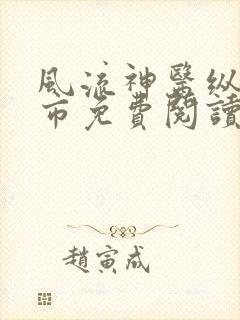 风流神醫纵
市免費閱讀
趙寅成